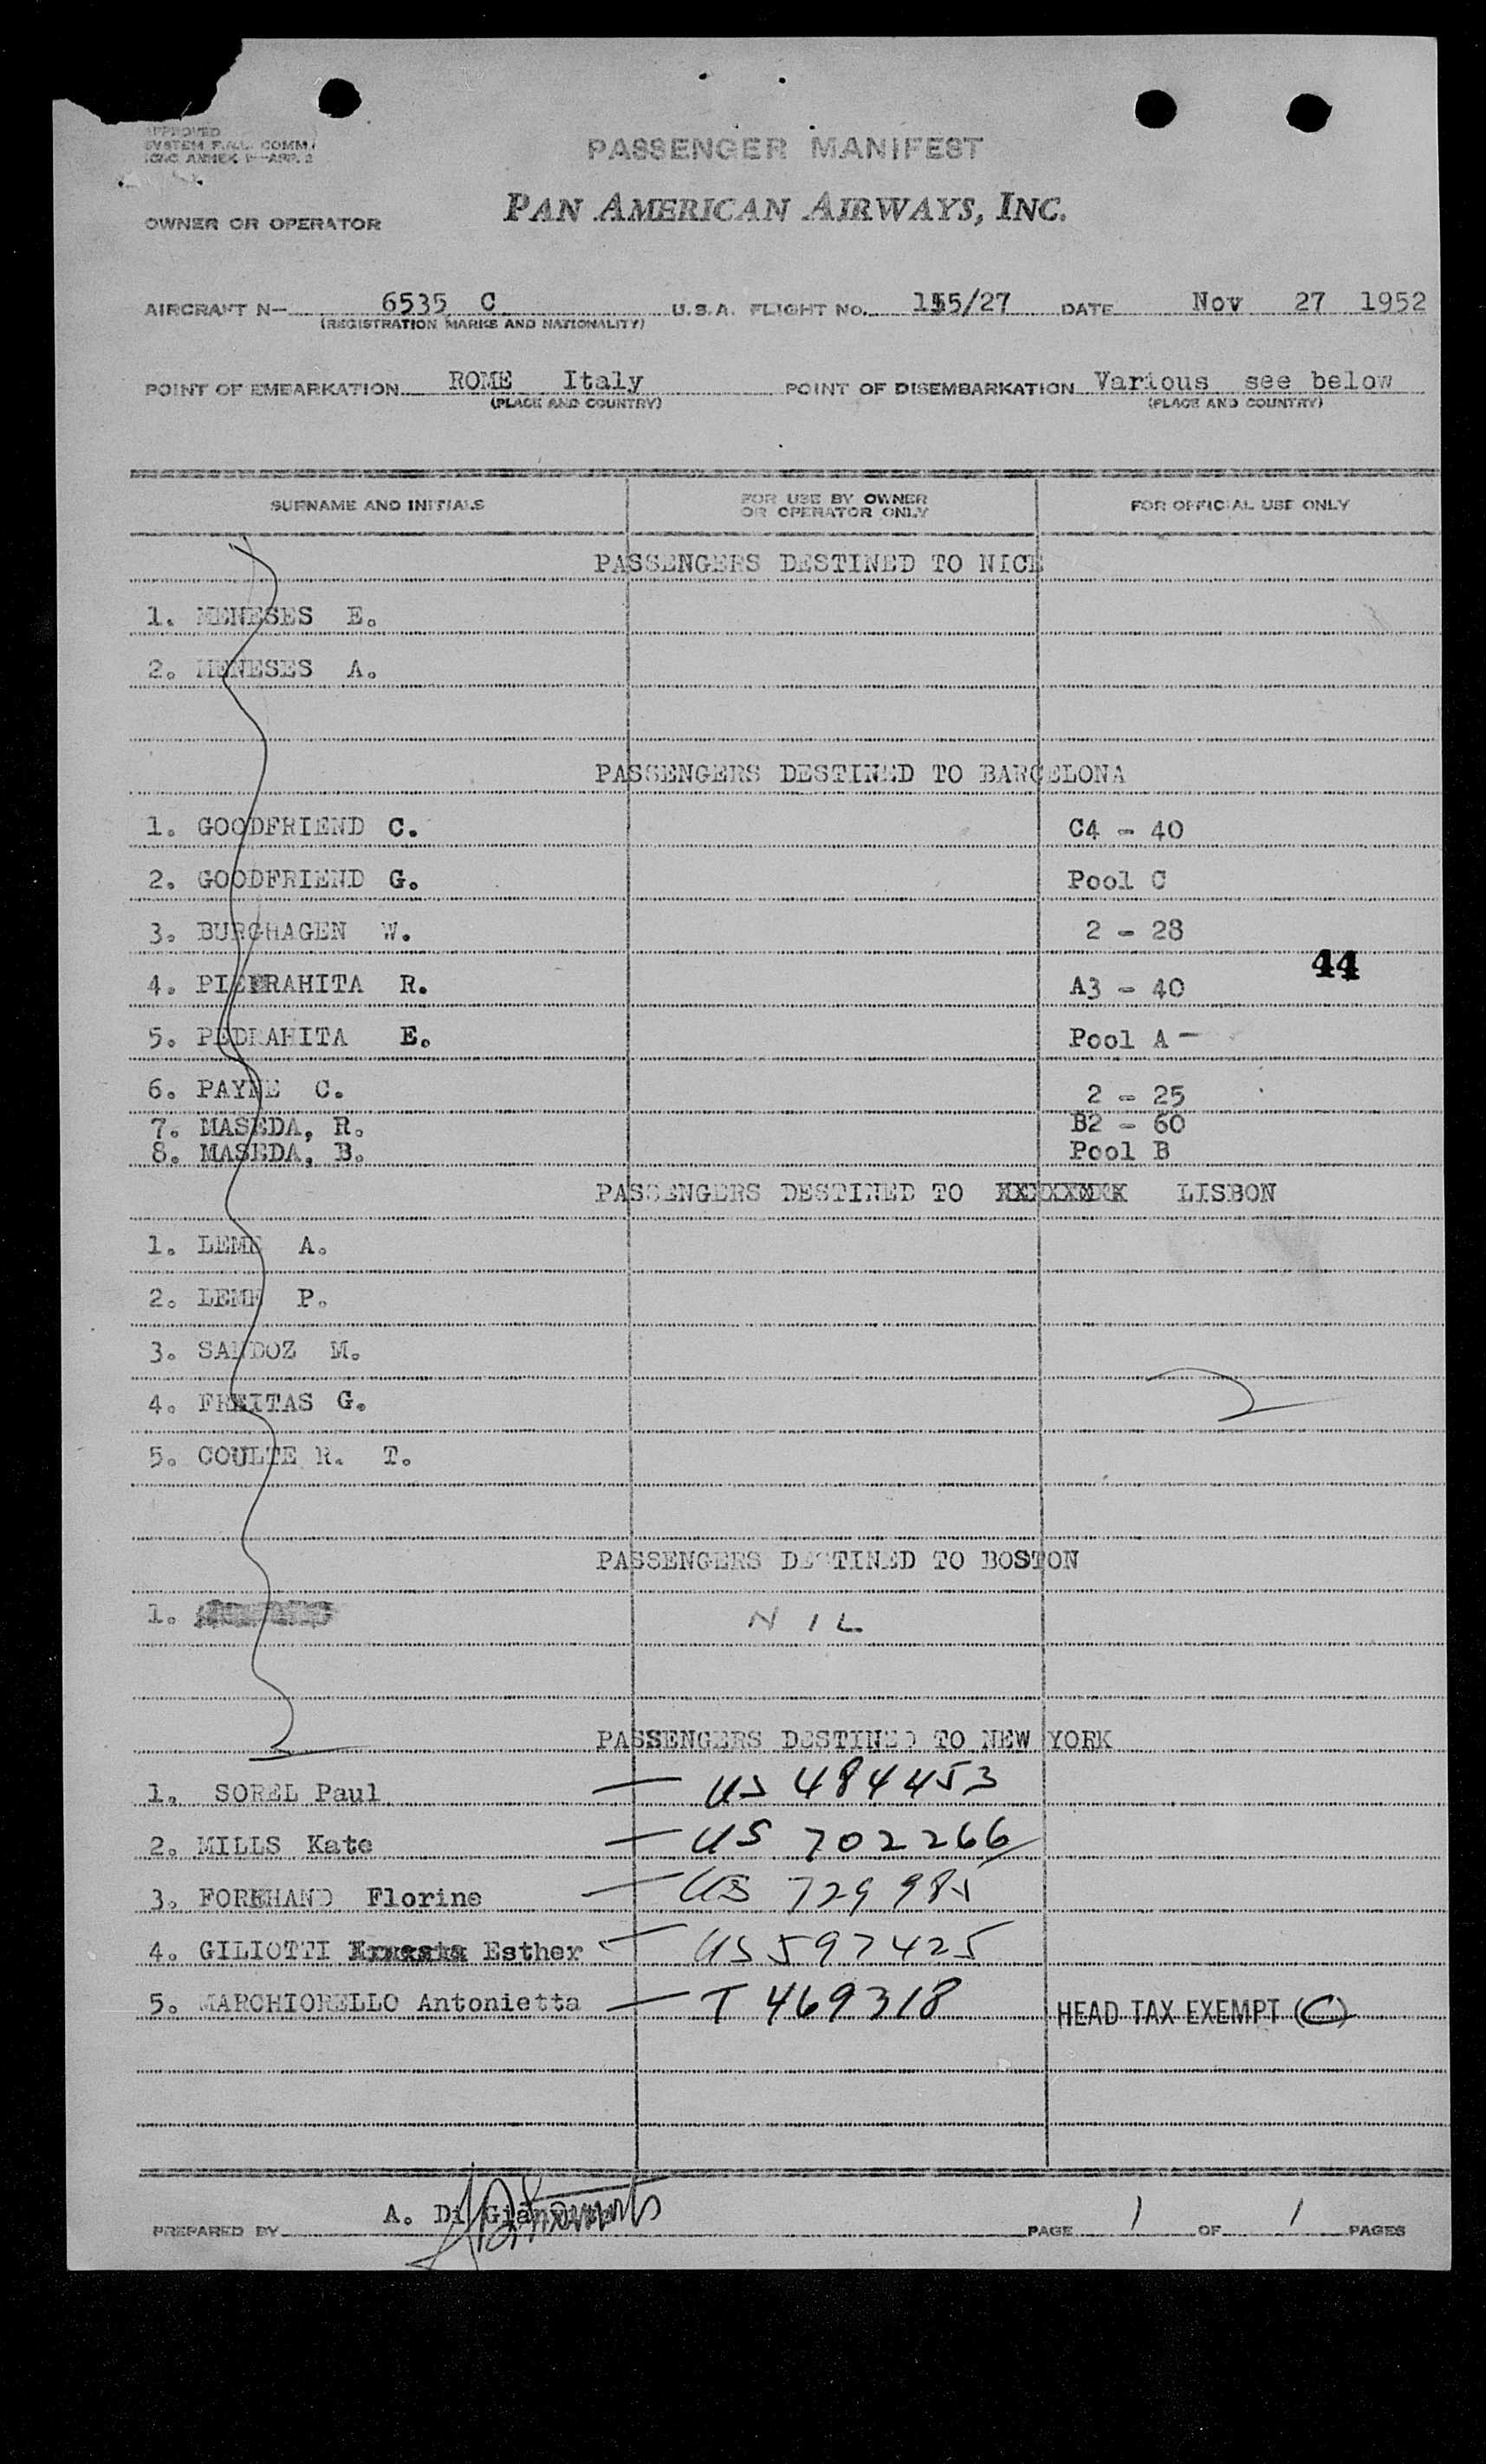 APPROVED
SYSTEM F.A.L. COMM.
ICAO ANNEX 9—APP. 2
PASSENGER MANIFEST
PAN AMERICAN AIRWAYS, INC.
OWNER OR OPERATOR
AIRCRAFT N— 6535 C U.S.A. FLIGHT No. 155/27 DATE Nov 27 1952
(REGISTRATION MARKS AND NATIONALITY)
POINT OF EMBARKATION ROME Italy POINT OF DISEMBARKATION Various see below
(PLACE AND COUNTRY) (PLACE AND COUNTRY)
SURNAME AND INITIALS FOR USE BY OWNER OR OPERATOR ONLY FOR OFFICIAL USE ONLY
PASSENGERS DESTINED TO NICE
1. MENESES E.
2. MENESES A.
PASSENGERS DESTINED TO BARCELONA
1. GOODFRIEND C. C4 - 40
2. GOODFRIEND G. Pool C
3. BURGHAGEN W. 2 - 28
44
4. PIEDRAHITA R. A3 - 40
5. PEDRAHITA E. Pool A -
6. PAYNE C. 2 - 25
7. MASEDA, R. B2 - 60
8. MASEDA, B. Pool B
PASSENGERS DESTINED TO LISBON
1. LEME A.
2. LEME P.
3. SANDOZ M.
4. FREITAS G.
5. COULTE R. T.
PASSENGERS DESTINED TO BOSTON
1. NIL
PASSENGERS DESTINED TO NEW YORK
1. SOREL Paul — US 484453
2. MILLS Kate — US 702266
3. FOREHAND Florine — US 729985
4. GILIOTTI Esther — US 597425
5. MARCHIORELLO Antonietta — T 469318 HEAD TAX EXEMPT (C)
PREPARED BY A. Di PAGE 1 OF 1 PAGES